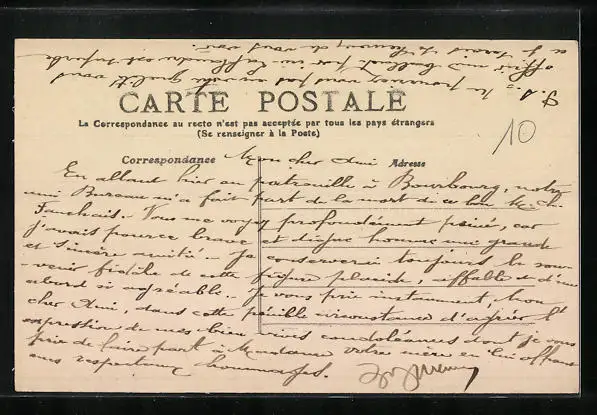 CARTE POSTALE
La Correspondance au recto n'est pas acceptée par tous les pays étrangers
(Se renseigner à la Poste)
Correspondance Mon cher Ami Adresse
10
En allant hier en patrouille à Bourbourg, notre
ami Bureau m'a fait part de la mort de ce bon Mr Ch.
Vous me voyez profondément peiné, car
j'avais pour ce brave et digne homme une grande
et sincère amitié. Je conserverai toujours le sou-
venir fidèle de cette figure placide, affable et d'un
abord si agréable. Je vous prie instamment, mon
cher Ami, dans cette pénible circonstance d'agréer l'
expression de mes bien vives condoléances dont je vous
prie de faire part à Madame votre mère en lui offrant
mes respectueux hommages.
P.S. = Ne pourriez vous pas en votre qualité vous